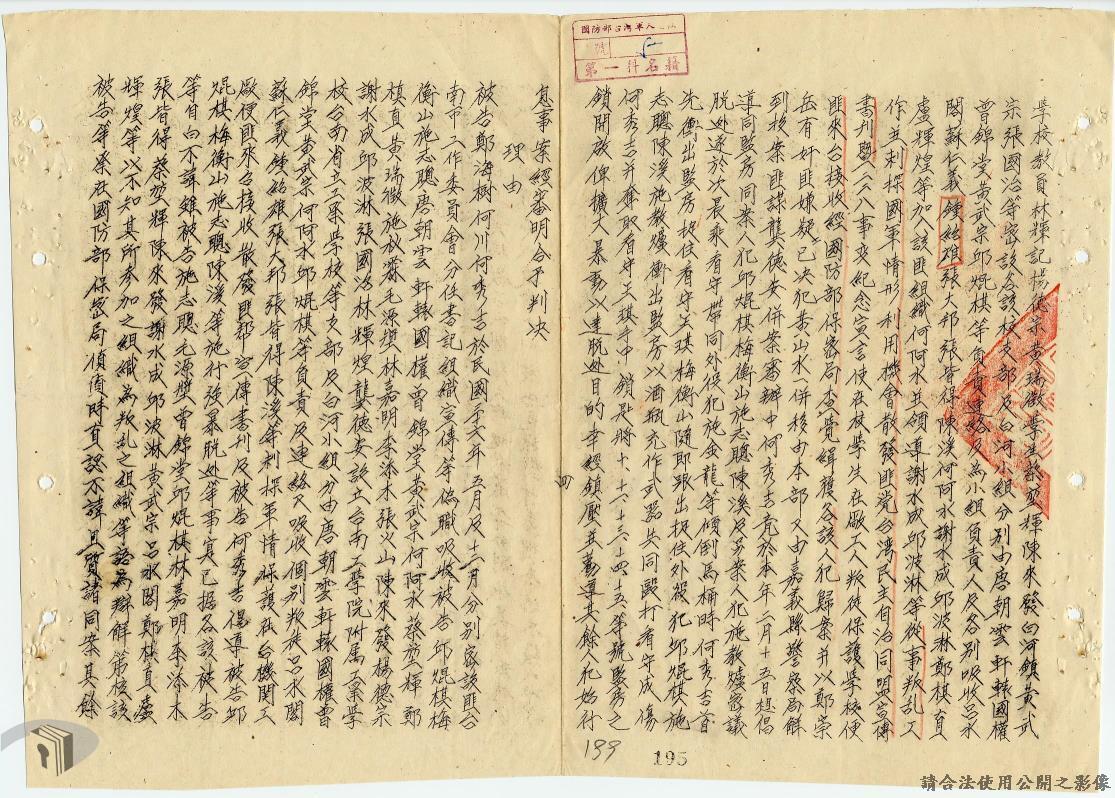 學校教員林輝記楊德宗黃瑞徵學生蔡堃輝陳來發白河鎮黃武
宗張國治等密設各該校支部及白河小組分別由唐朝雲軒轅國權
曾錦堂黃武宗邱焜棋等負責連絡又為小組負責人及各別吸收呂水
閣蘇仁義鍾紹雄張大邦張皆得陳溪何阿水謝水成邱波淋鄭棋真
盧輝煌等加入該匪組織何阿水並領導謝水成邱波淋等從事叛乱工
作並刺探國軍情形利用機會散發匪党台湾民主自治同盟宣傳
書刊暨二二八事变紀念宣言使在校學生在廠工人叛徒保護學校便
匪來台接收經國防部保密局查覺緝獲各該犯歸案并以鄭崇
岳有奸匪嫌疑已决犯黃山水一併移由本部又由嘉義縣警察局解
到移案匪諜龔德安併案審辦中何秀吉竟於本年二月十五日想倡
導同監房同案人犯邱焜棋梅衡山施志聰陳溪及另案人犯施教爐密議
脱逃遂於次晨乘看守帶同外役犯施金龍等傾倒馬桶時何秀吉首
先衝出監房扭住看守王琪梅衡山隨即跟出扭住外役犯邱焜棋施
志聰陳溪施教爐衝出監房以酒瓶充作武器共同毆打看守成傷
何秀吉并奪取看守王琪手中鎖匙將十、十六、十三、十四、十五等號監房之
鎖開啟俾擴大暴動以達脱逃目的幸經鎮壓並勸導其餘人犯始行
息事案經審明合予判决
理由
被告鄭海樹何川何秀吉於民國三十六年五月及十二月分別密設匪台
南市工作委員會分任書記組織宣傳等偽職吸收被告邱焜棋梅
衡山施志聰唐朝雲軒轅國權曾錦堂黃武宗何阿水蔡堃輝鄭
棋真黃瑞徵施校霖毛源奬林嘉明李添木張火山陳來發楊德宗
謝水成邱波淋張國治林輝煌龔德安設立台南工學院附屬工業學
校台南省立工業學校等支部及白河小組分由唐朝雲軒轅國權曾
錦堂黃武宗何阿水邱焜棋等負責及連絡又吸收個別叛徒呂水閣
蘇仁義鍾紹雄張大邦張皆得陳溪等刺探軍情保護在台機關工
廠便匪來台接收散發匪幫宣傳書刊及被告何秀吉倡導被告邱
焜棋梅衡山施志聰陳溪等施行強暴脱逃等事實已據各該被告
等自白不諱雖被告施志聰毛源奬曾錦堂邱焜棋林嘉明李添木
張皆得蔡堃輝陳來發謝水成邱波淋黃武宗呂水閣鄭棋真盧
輝煌等以不知其所參加之組織為叛乱之組織等語為辯解第核該
被告等業在國防部保密局偵查時直認不諱且質諸同案其餘
四
199
195
國防部台灣軍人
號
第一科名籍
請合法使用公開之影像